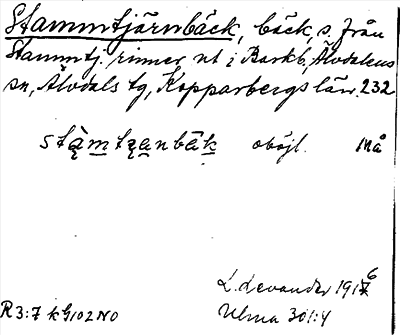 Stammtjärnbäck, bäck, s. från
Stammtj. rinner ut i Barkb, Älvdalens
sn, Älvdals tg, Kopparbergs län. 232
obōjl. må
L. Levander 1916
R3:7 k G102 NO
Ulma 301:4